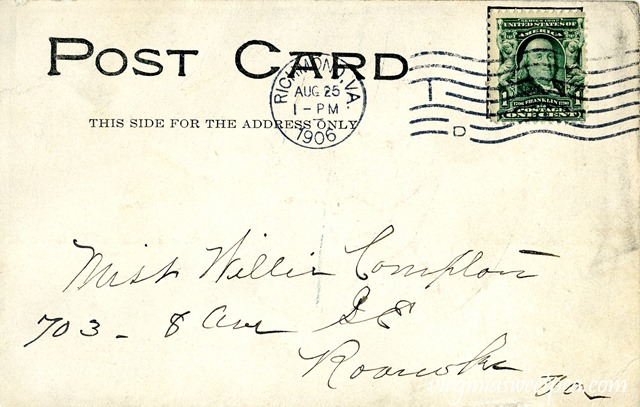 POST CARD
THIS SIDE FOR THE ADDRESS ONLY
RICHMOND, VA.
AUG 25
1 - PM
1906
D
SERIES 1902
UNITED STATES OF
AMERICA
1 1
1706 FRANKLIN 1790
POSTAGE
ONE CENT
Miss Willie Compton
703 - 8 Ave S E
Roanoke Va